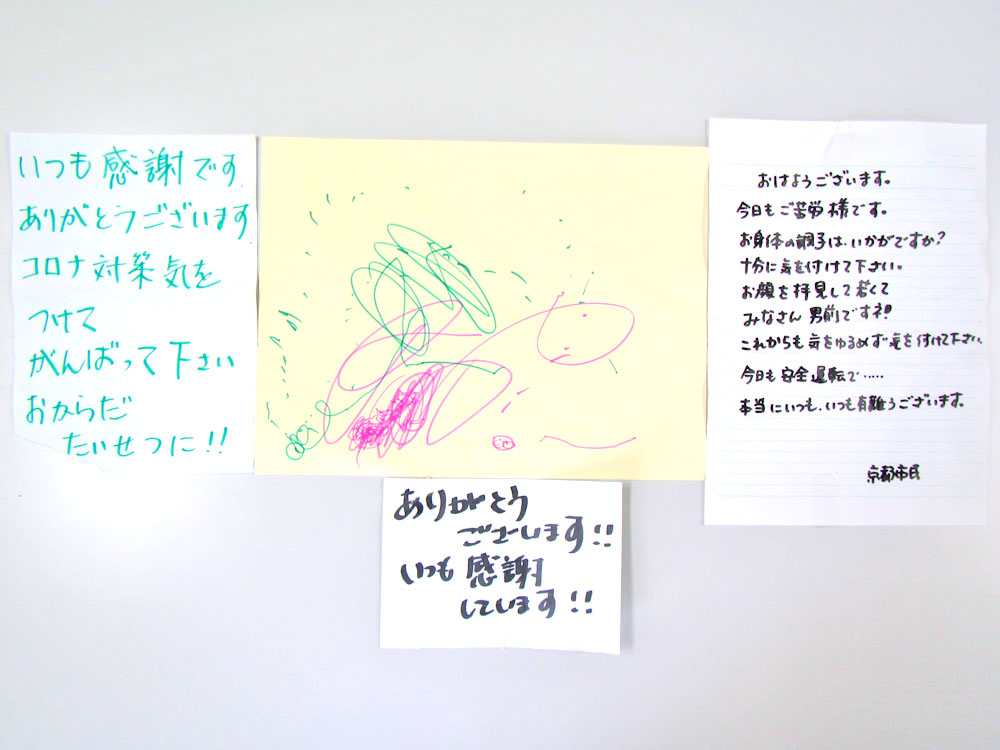 いつも感謝です
ありがとうございます
コロナ対策気を
つけて
がんばって下さい
おからだ
たいせつに!!
ありがとう
ございます!!
いつも感謝
しています!!
おはようございます。
今日もご苦労様です。
お身体の調子は、いかがですか?
十分に気を付けて下さい。
お顔を拝見して若くて
みなさん男前ですネ!!
これからも気をゆるめず気を付けて下さい
今日も安全運転で.....
本当にいつも、いつも有難うございます。
京都市民